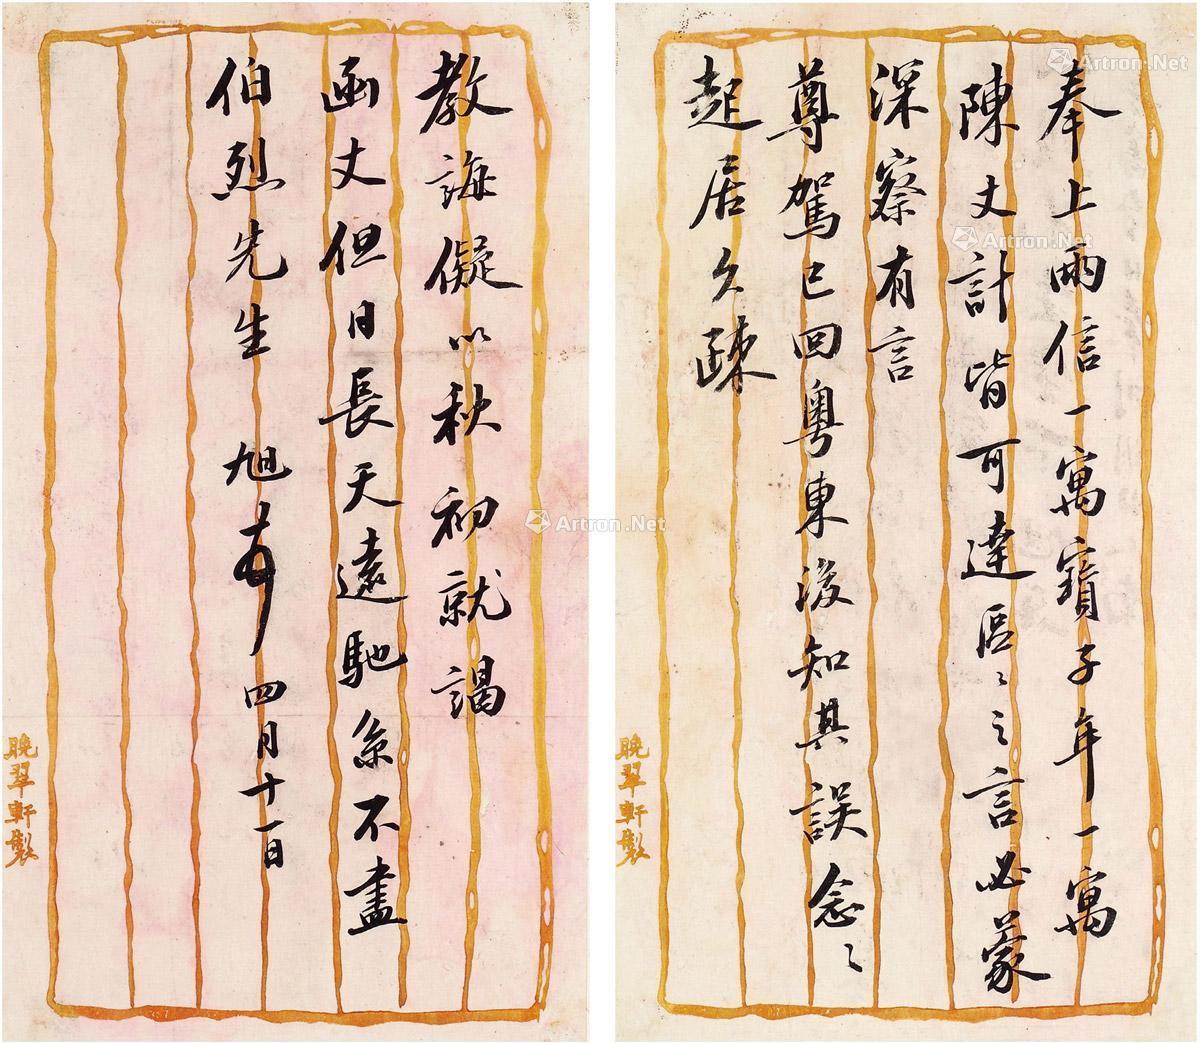 奉上兩信一寓寶子年一寓
陳丈計皆可達區〻之言必蒙
深察有言
尊駕已回粵東後知其誤念〻
起居久疎
教誨儗以秋初就謁
函丈但日長天遠馳系不盡
伯烈先生 旭 四月十一日
晚翠軒製
晚翠軒製
Artron.Net
Artron.Net
Artron.Net